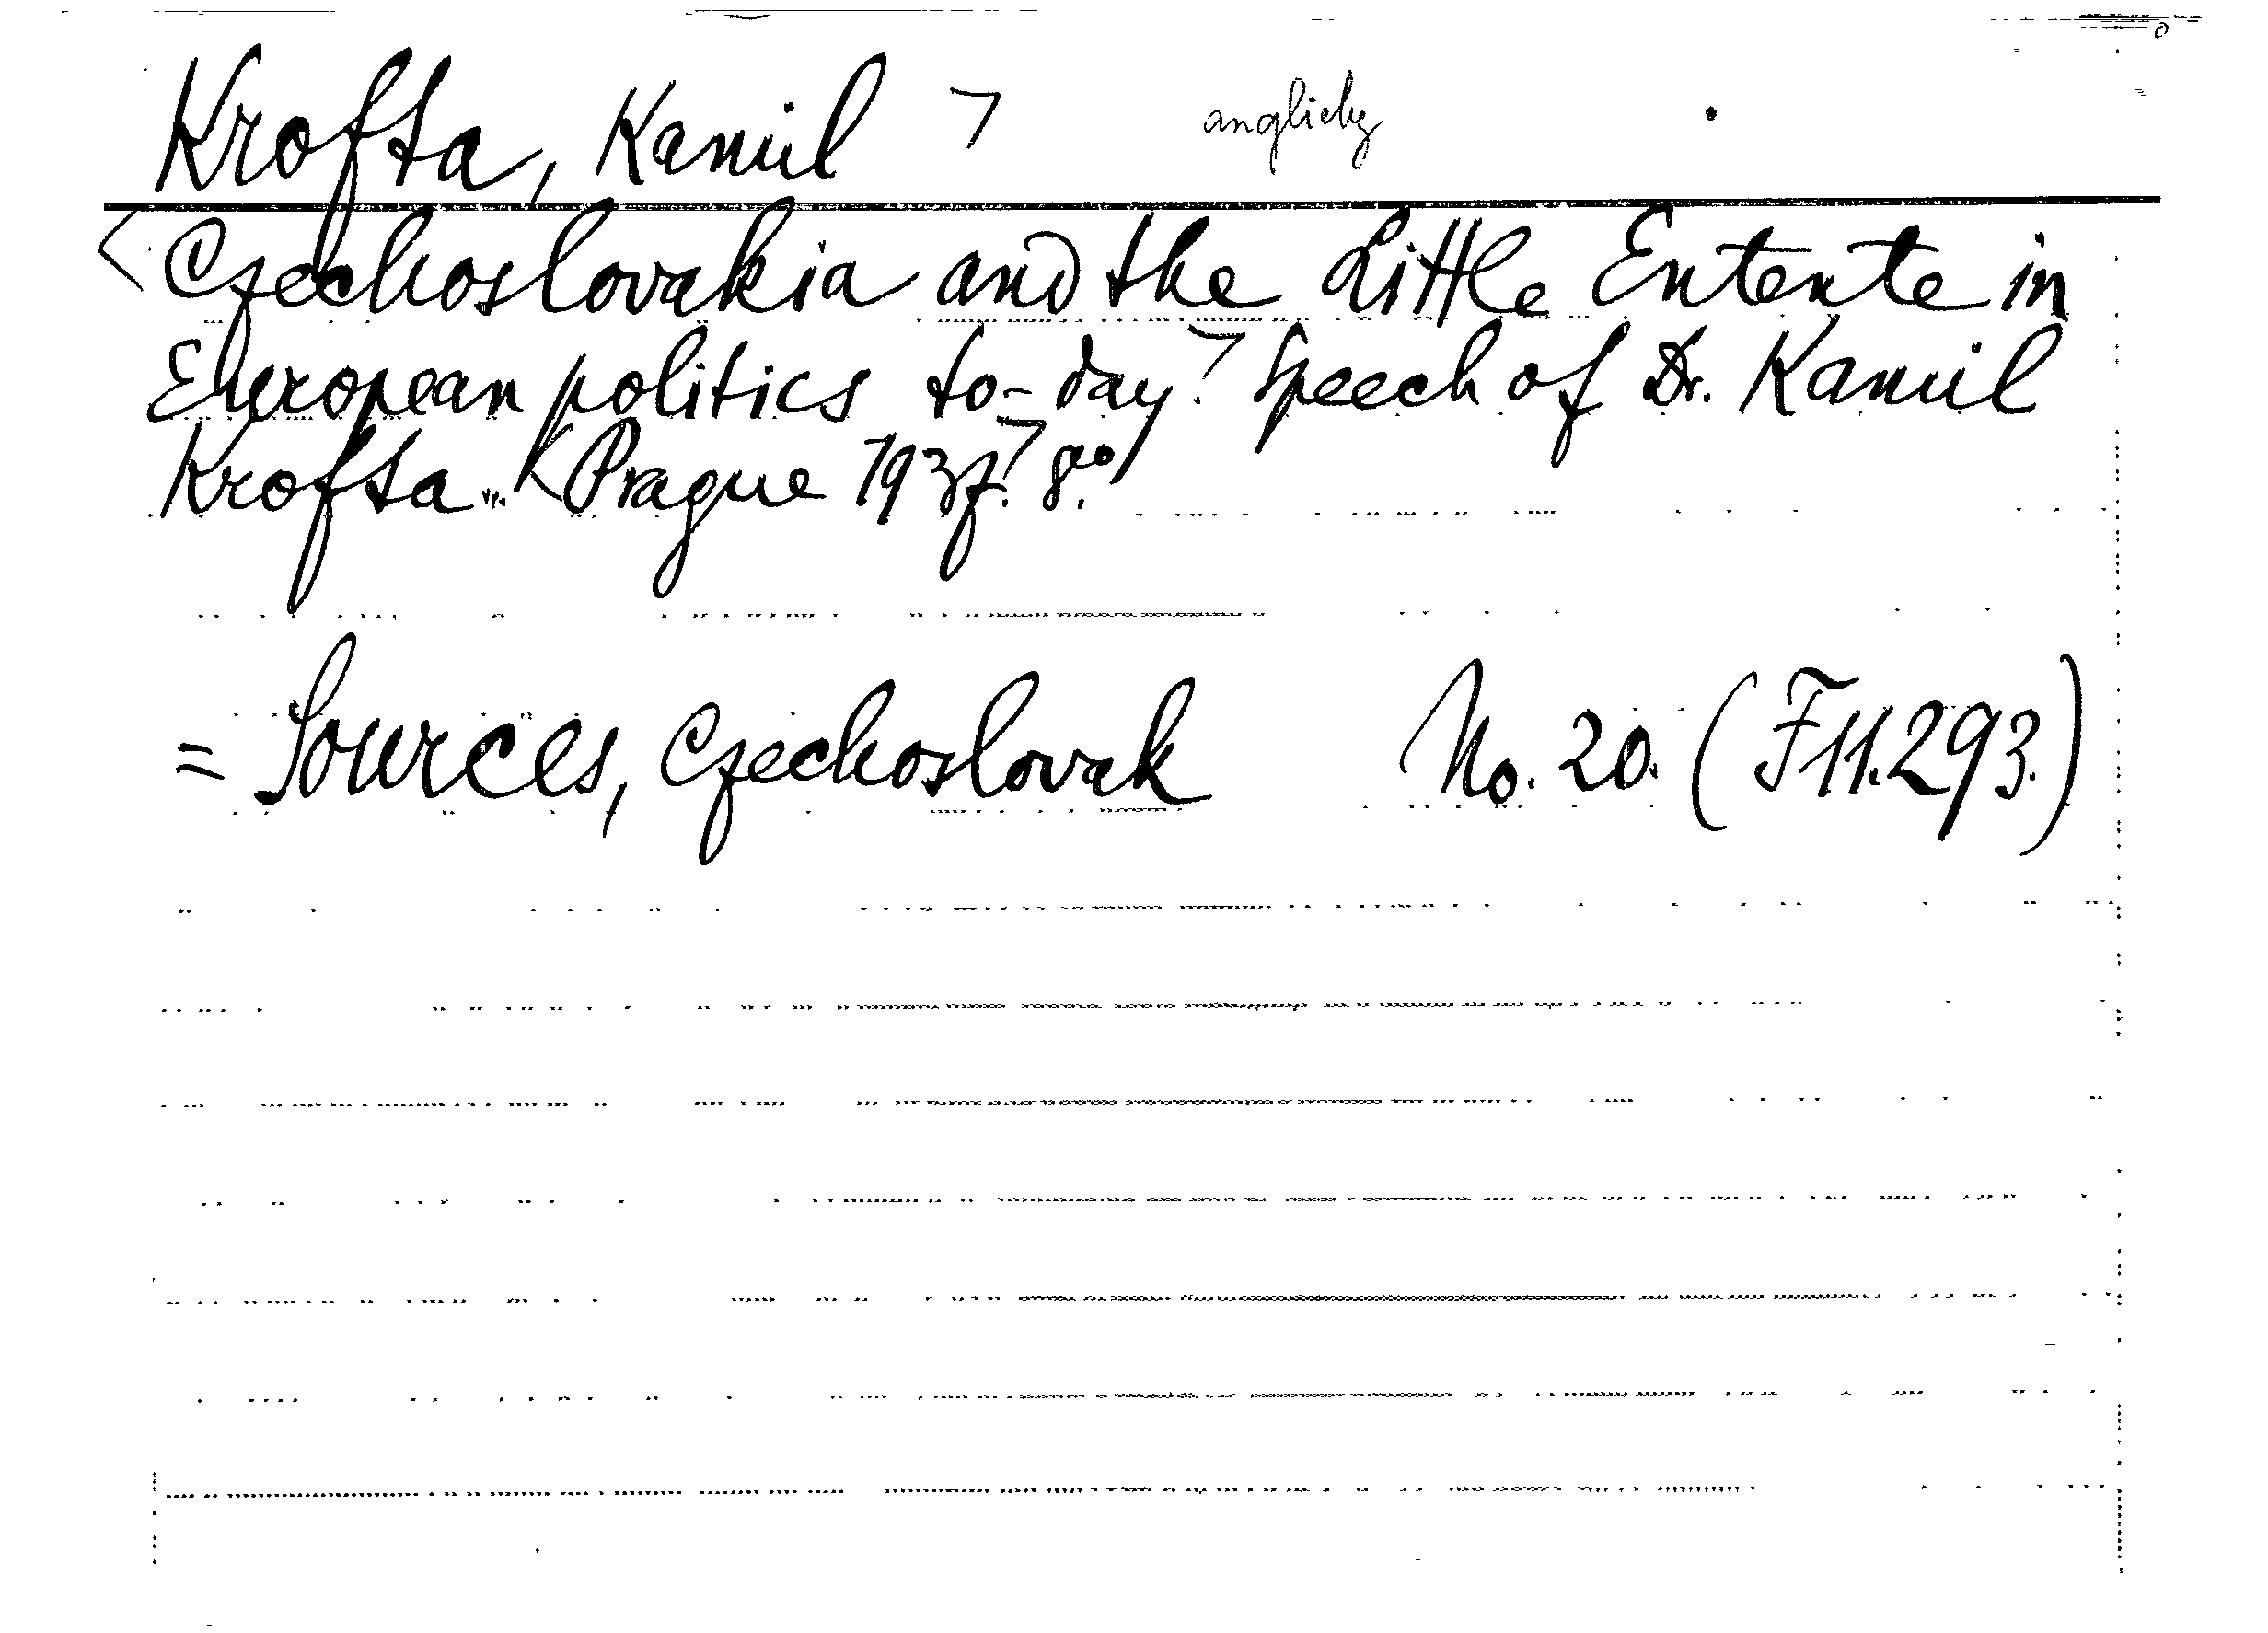 Krofta, Kamil > anglicky
<Czechoslovakia and the Little Entente in
European politics to-day.> Speech of Dr. Kamil
Krofta... <Prague 1937.> 8°.
= Sources, Czechoslovak No. 20. (F 11.293.)